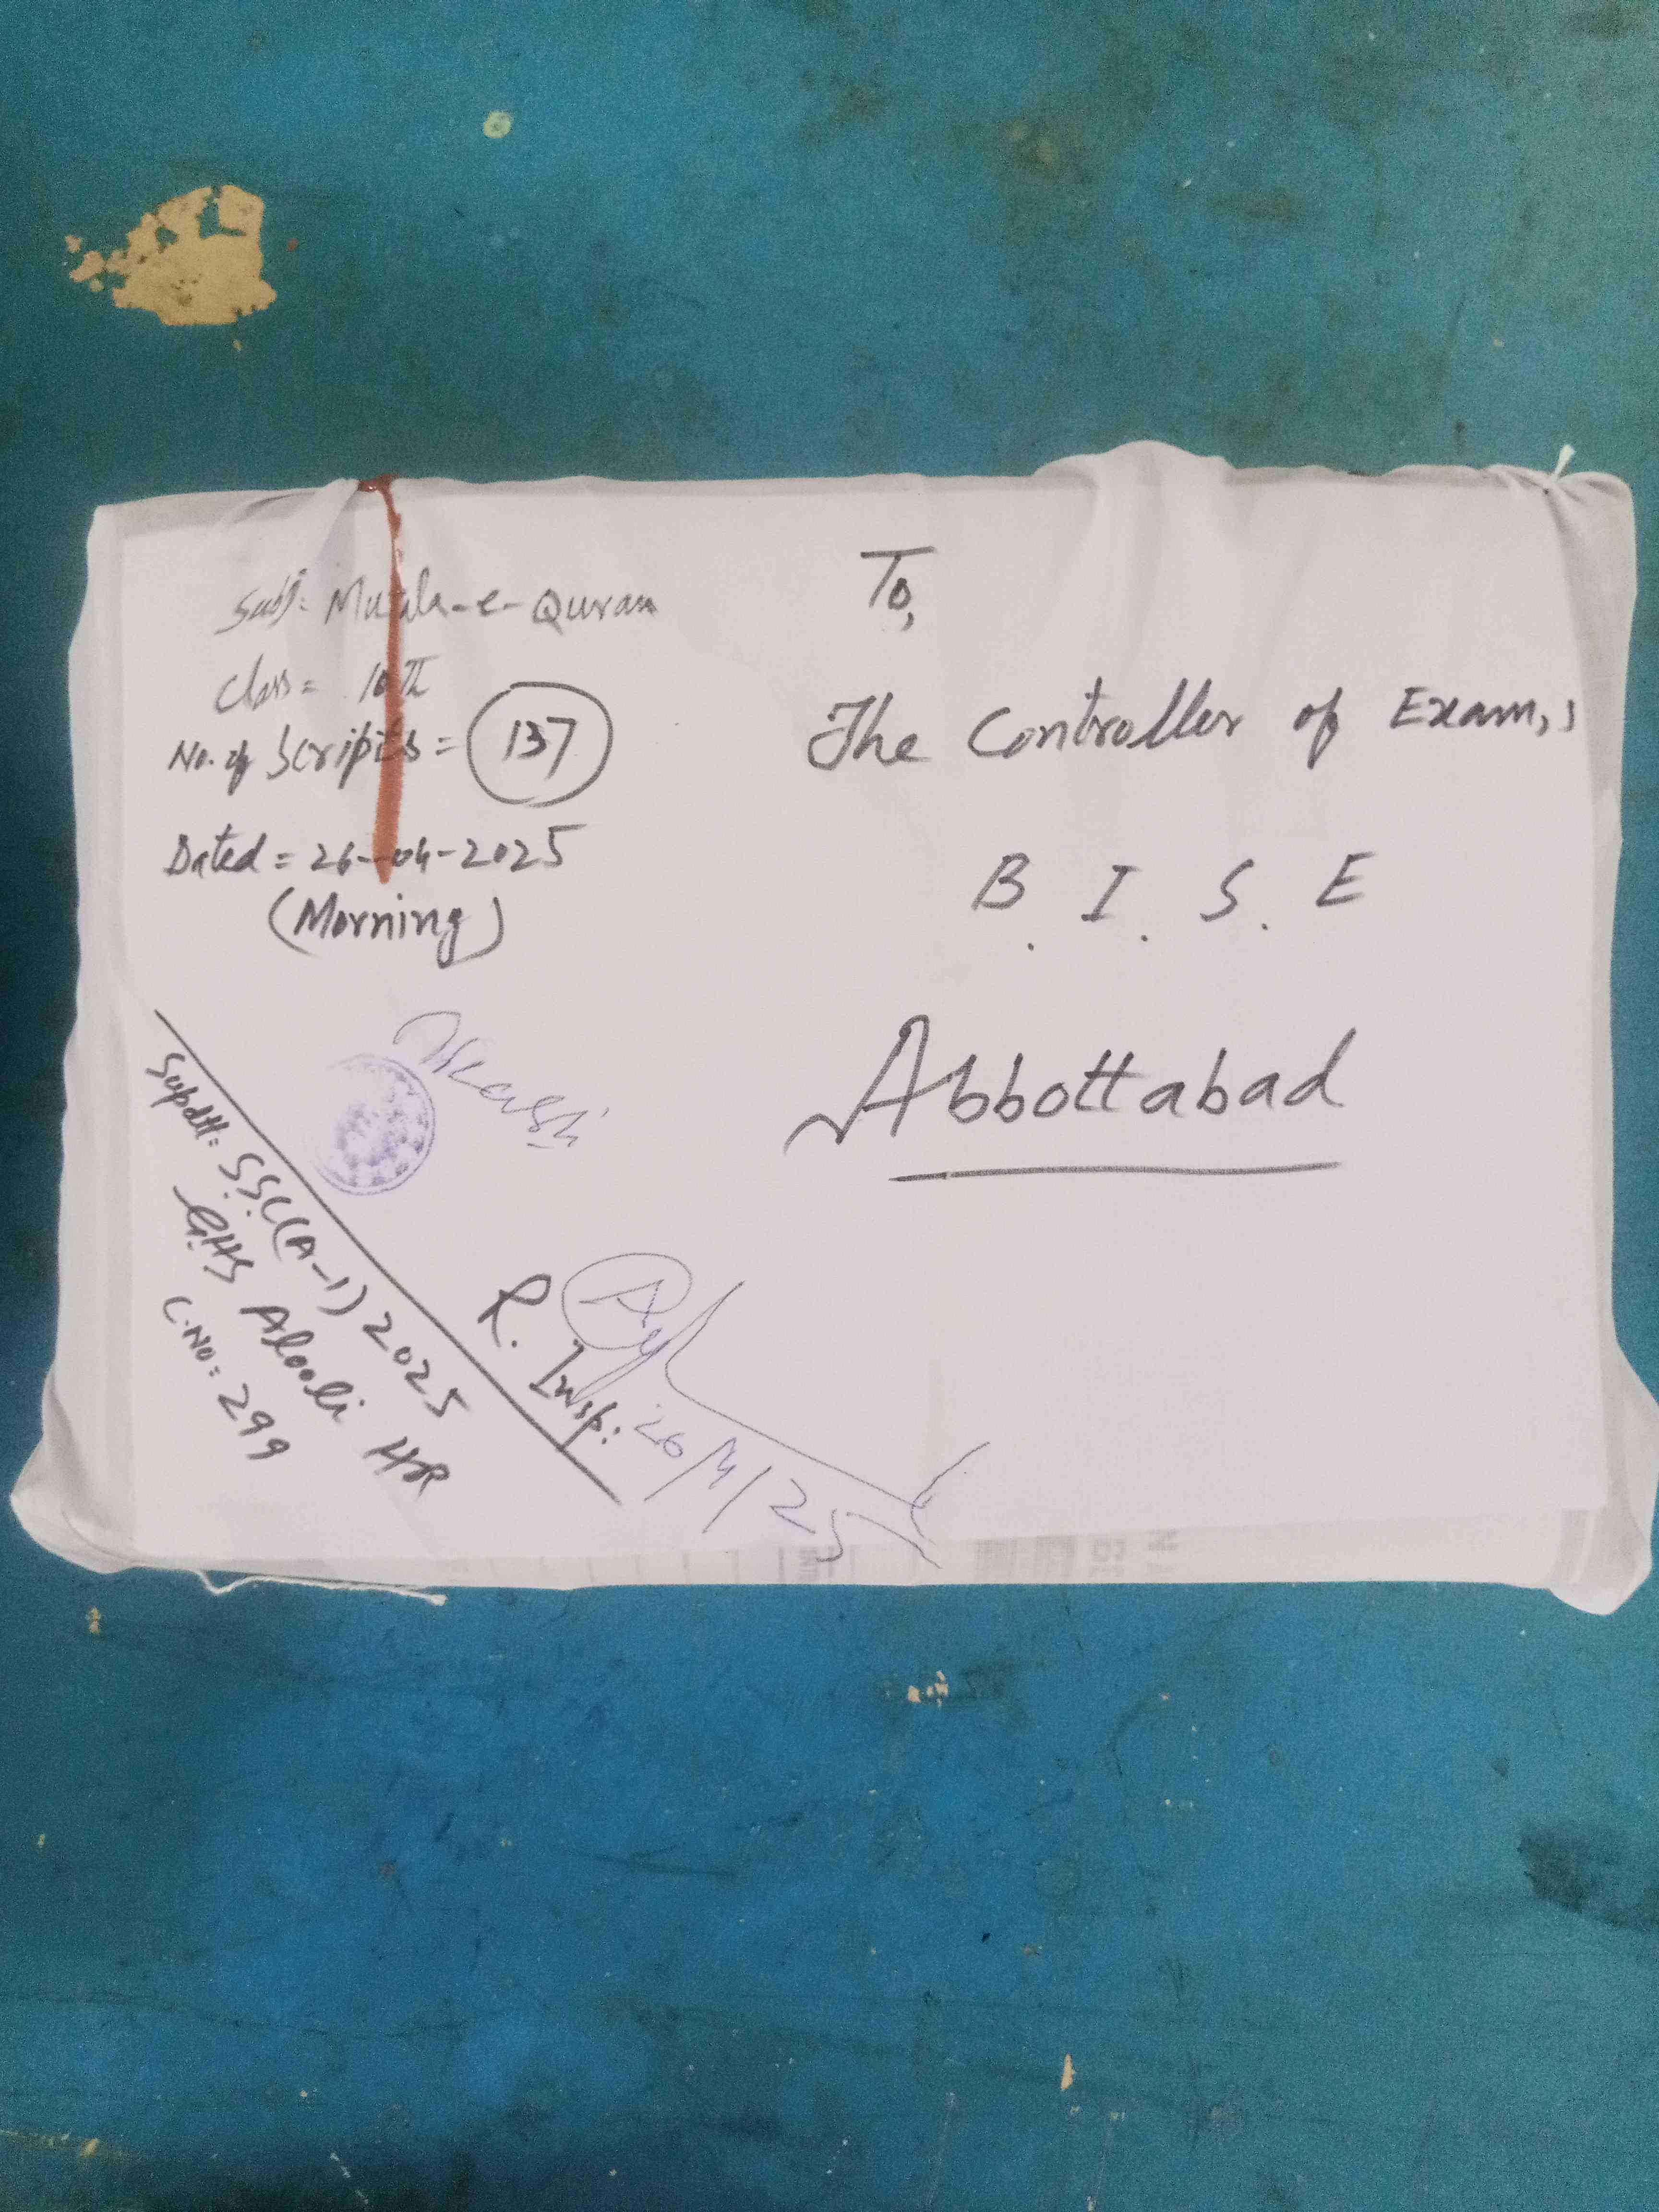 Subj: Mutala-e-Quran
Class = 10th
No. of Scripts = 137
Dated = 26-04-2025
(Morning)
To,
The Controller of Exam,s
B. I. S. E
Abbottabad
Supdtt: SSC(A-1) 2025
GHS Alooli HR
C.No: 299
R. Insp:
26/4/25